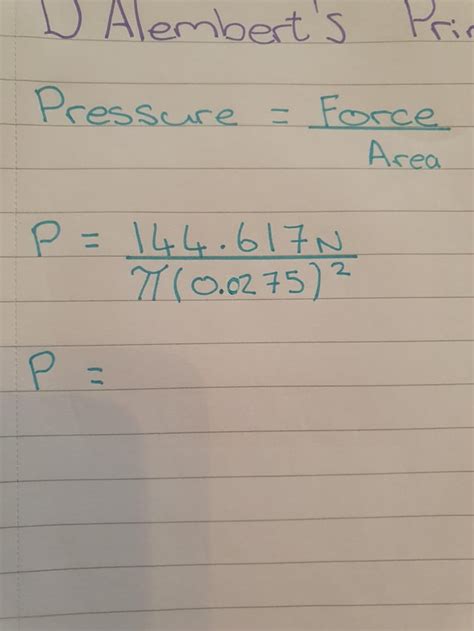 D'Alembert's
Pressure = Force
Area
P = 144.617N
π(0.0275)²
P =